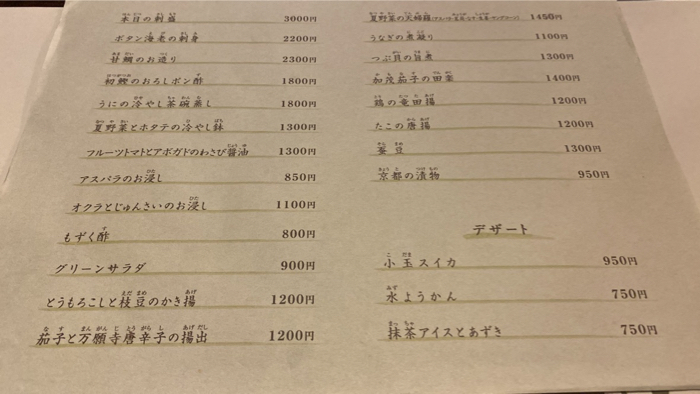 本日の刺盛 3000円
ボタン海老の刺身 2200円
甘鯛のお造り 2300円
初鰹のおろしポン酢 1800円
うにの冷やし茶碗蒸し 1800円
夏野菜とホタテの冷やし鉢 1300円
フルーツトマトとアボガドのわさび醤油 1300円
アスパラのお浸し 850円
オクラとじゅんさいのお浸し 1100円
もずく酢 800円
グリーンサラダ 900円
とうもろこしと枝豆のかき揚 1200円
茄子と万願寺唐辛子の揚出 1200円
夏野菜の天婦羅 1450円
うなぎの煮凝り 1100円
つぶ貝の旨煮 1300円
加茂茄子の田楽 1400円
鶏の竜田揚 1200円
たこの唐揚 1200円
蚕豆 1300円
京都の漬物 950円
デザート
小玉スイカ 950円
水ようかん 750円
抹茶アイスとあずき 750円